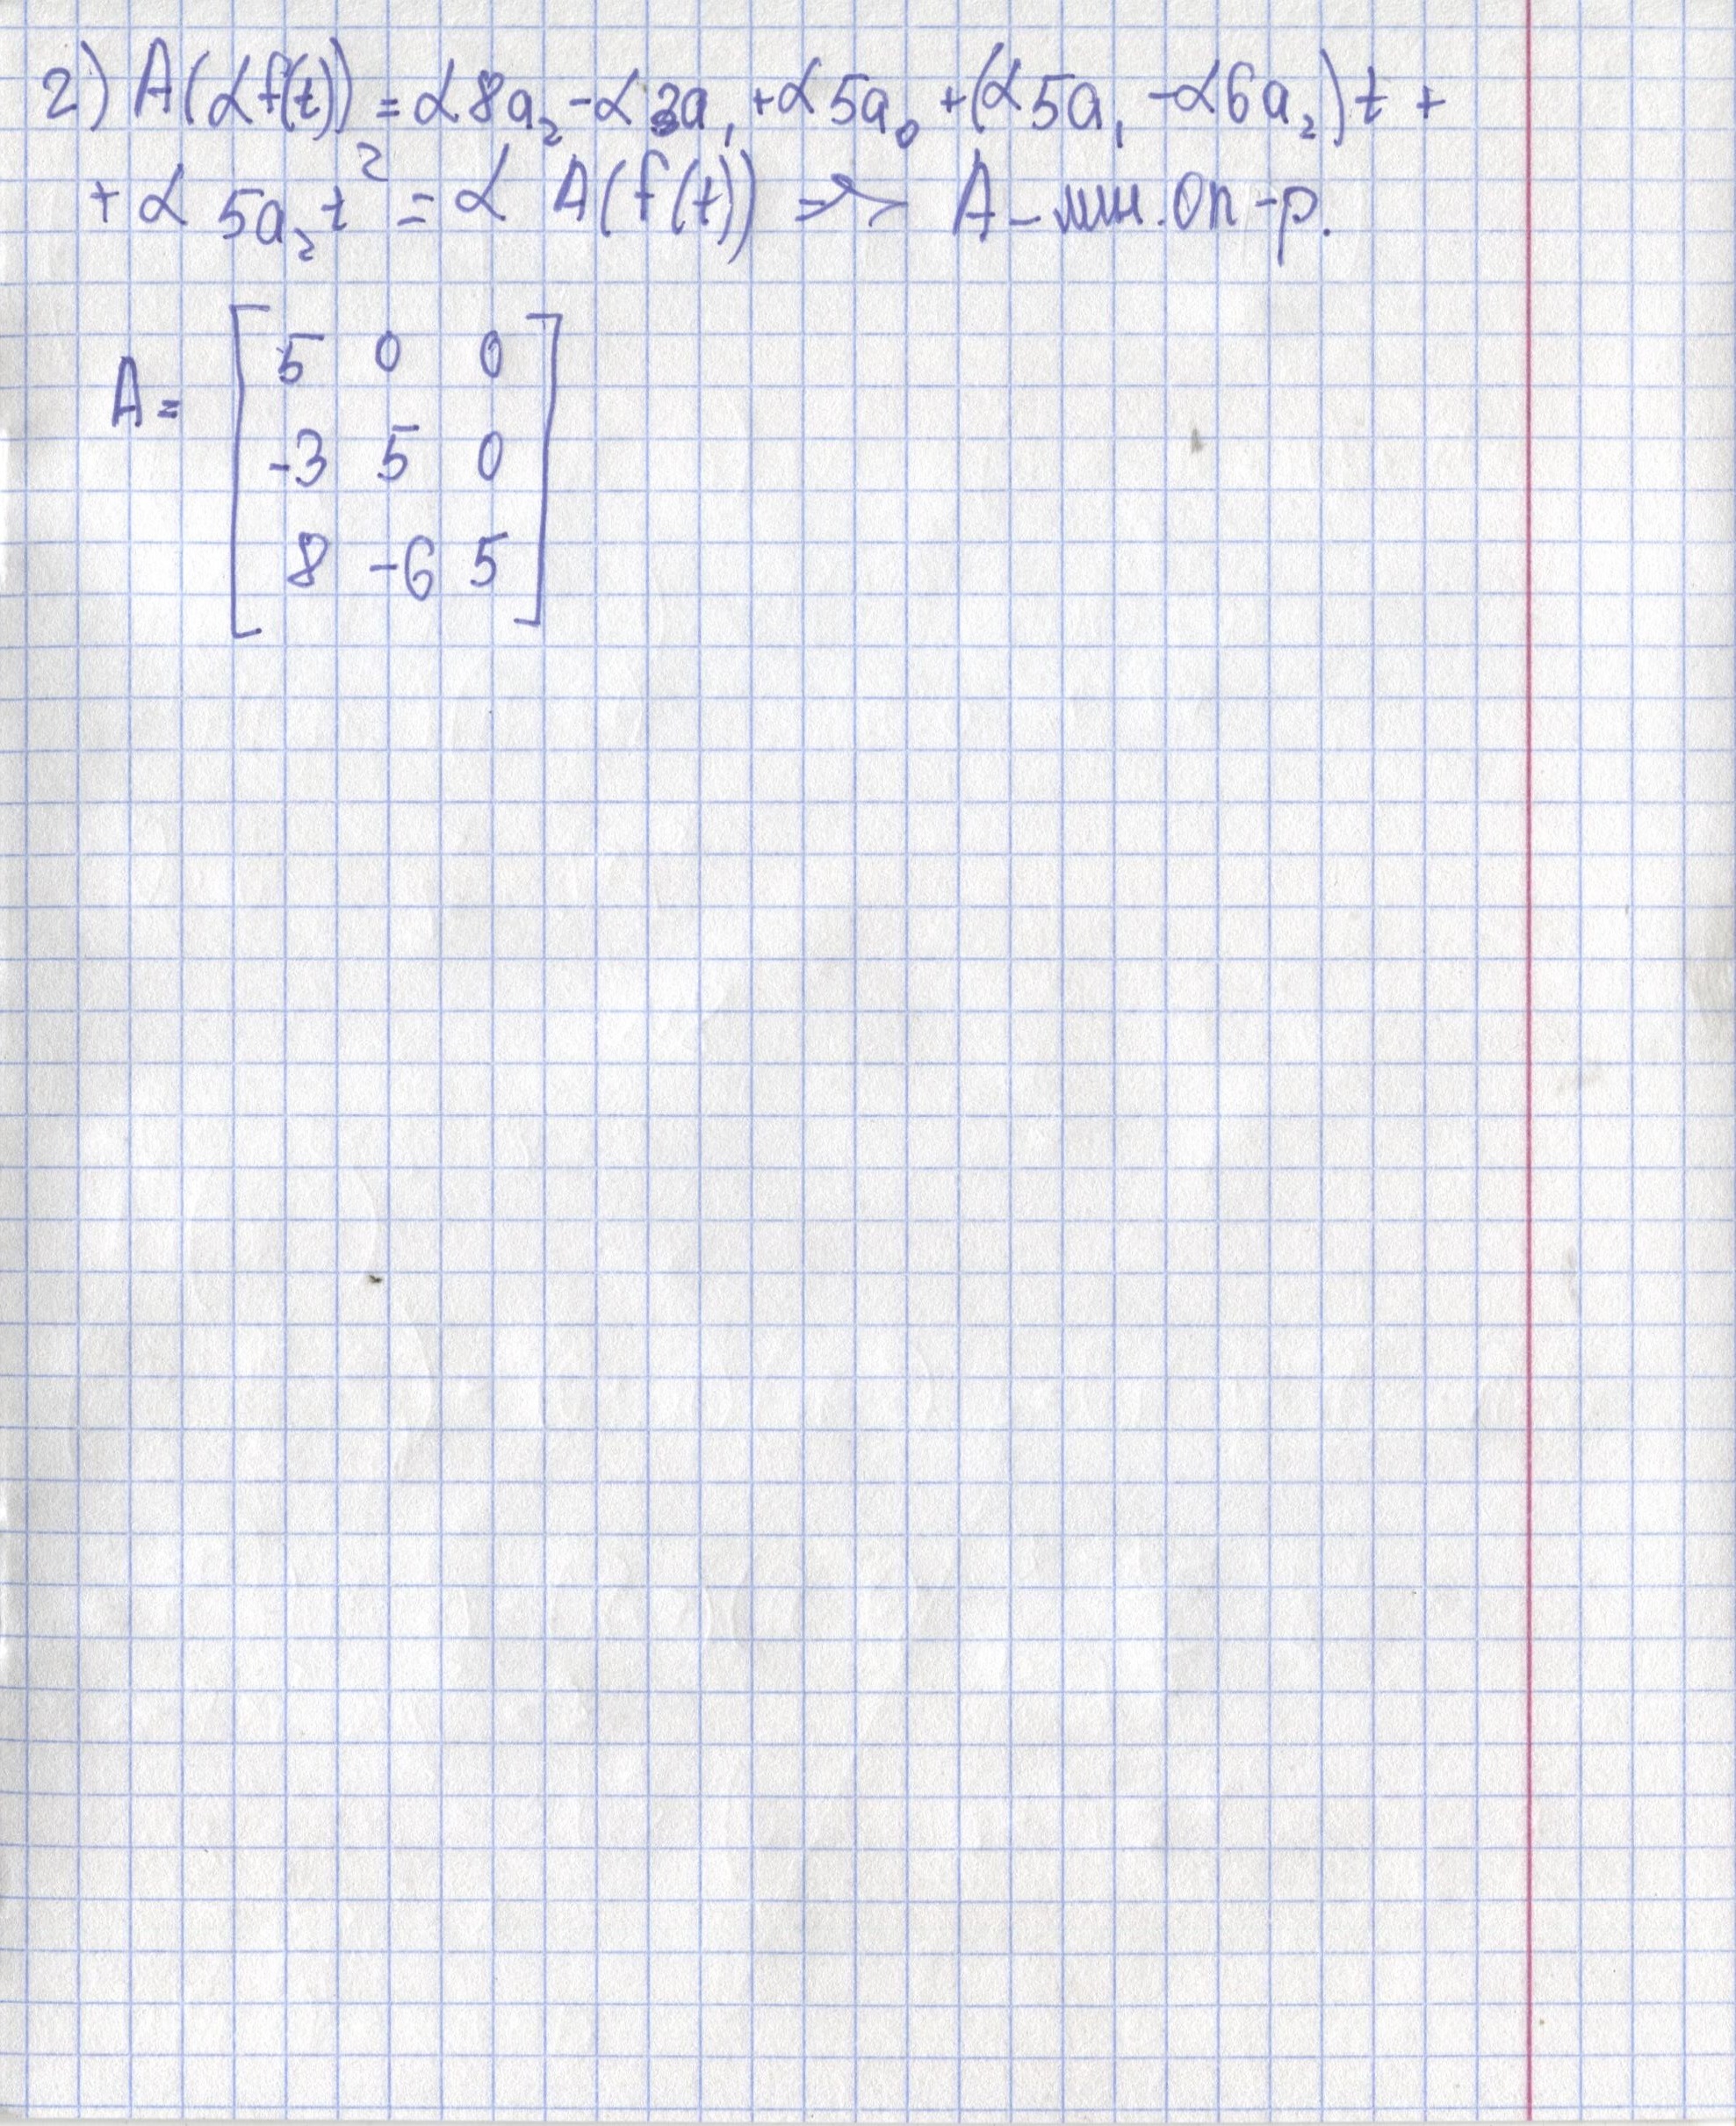 2) A(αf(t)) = α8a₂ - α3a₁ + α5a₀ + (α5a₁ - α6a₂)t +
+ α 5a₂t² = α A(f(t)) => A - лин. оп-р.
A = [5 0 0
-3 5 0
8 -6 5]